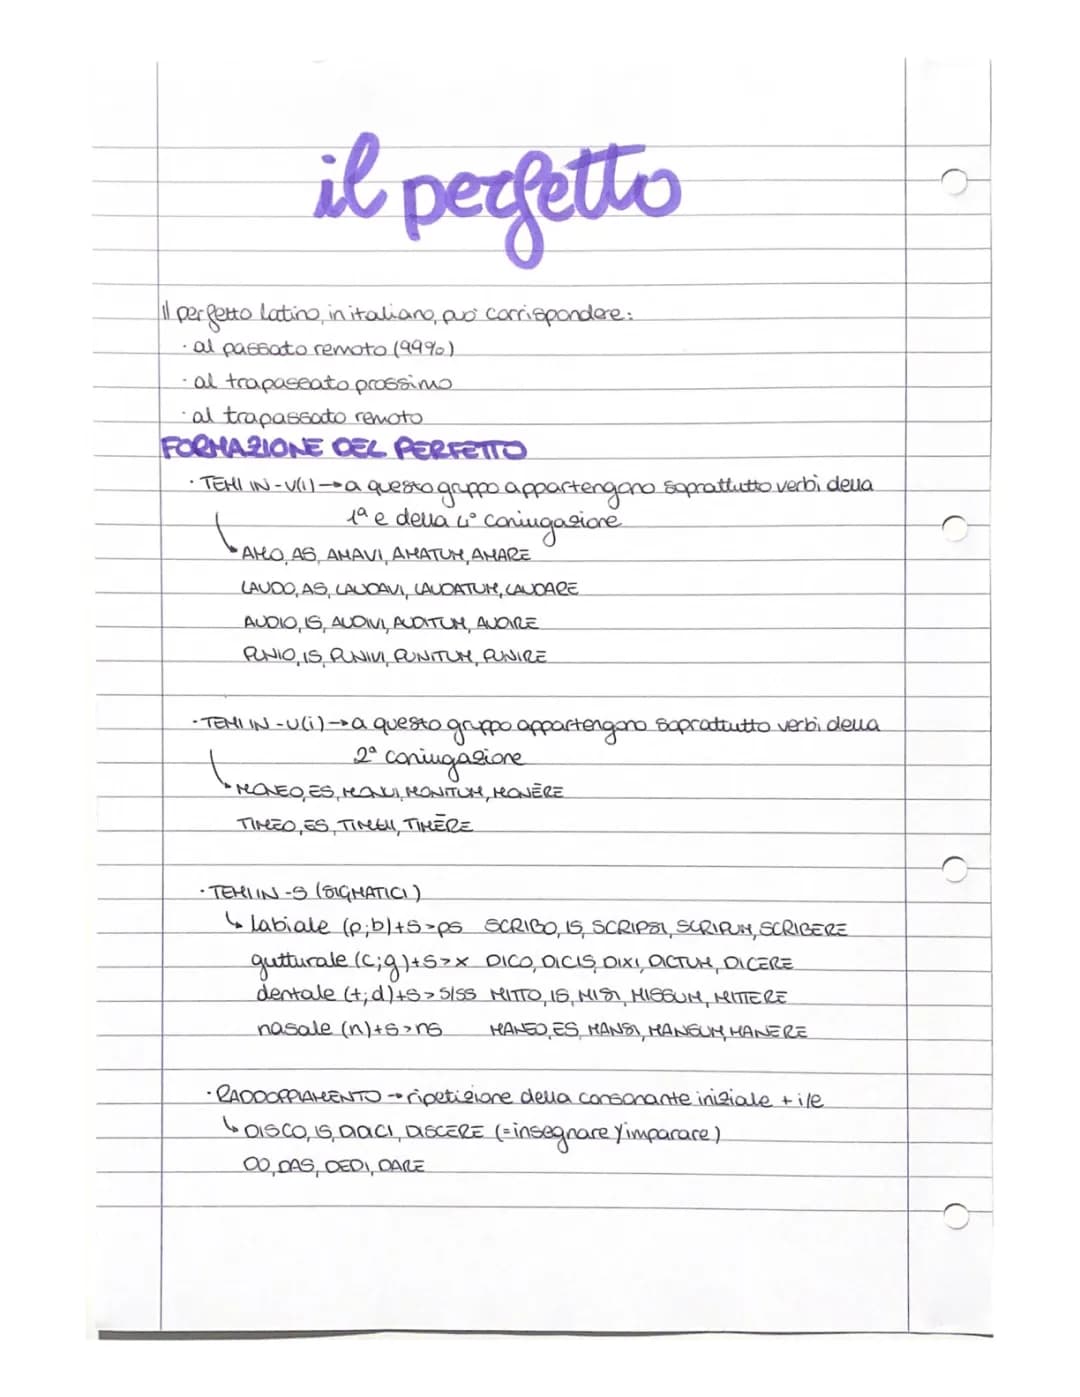 il perfetto
Il perfetto latino, in italiano, può corrispondere:
· al passato remoto (99%)
· al trapassato prossimo
· al trapassato remoto
FORMAZIONE DEL PERFETTO
· TEMI IN -V(I) → a questo gruppo appartengono soprattutto verbi della
1ª e della 4ª coniugazione
AMO, AS, AMAVI, AMATUM, AMARE
LAUDO, AS, LAUDAVI, LAUDATUM, LAUDARE
AUDIO, IS, AUDIVI, AUDITUM, AUDIRE
PUNIO, IS, PUNIVI, PUNITUM, PUNIRE
· TEMI IN -U(i) → a questo gruppo appartengono soprattutto verbi della
2ª coniugazione
MONEO, ES, MONUI, MONITUM, MONĒRE
TIMEO, ES, TIMUI, TIMĒRE
· TEMI IN -S (SIGMATICI)
↳ labiale (p;b)+s>ps SCRIBO, IS, SCRIPSI, SCRIPUM, SCRIBERE
gutturale (c;g)+s>x DICO, DICIS, DIXI, DICTUM, DICERE
dentale (t;d)+s>s/ss MITTO, IS, MISI, MISSUM, MITTERE
nasale (n)+s>ns MANEO, ES, MANSI, MANSUM, MANERE
· RADDOPPIAMENTO → ripetizione della consonante iniziale + i/e
↳ DISCO, IS, DIDICI, DISCERE (=insegnare / imparare)
DO, DAS, DEDI, DARE